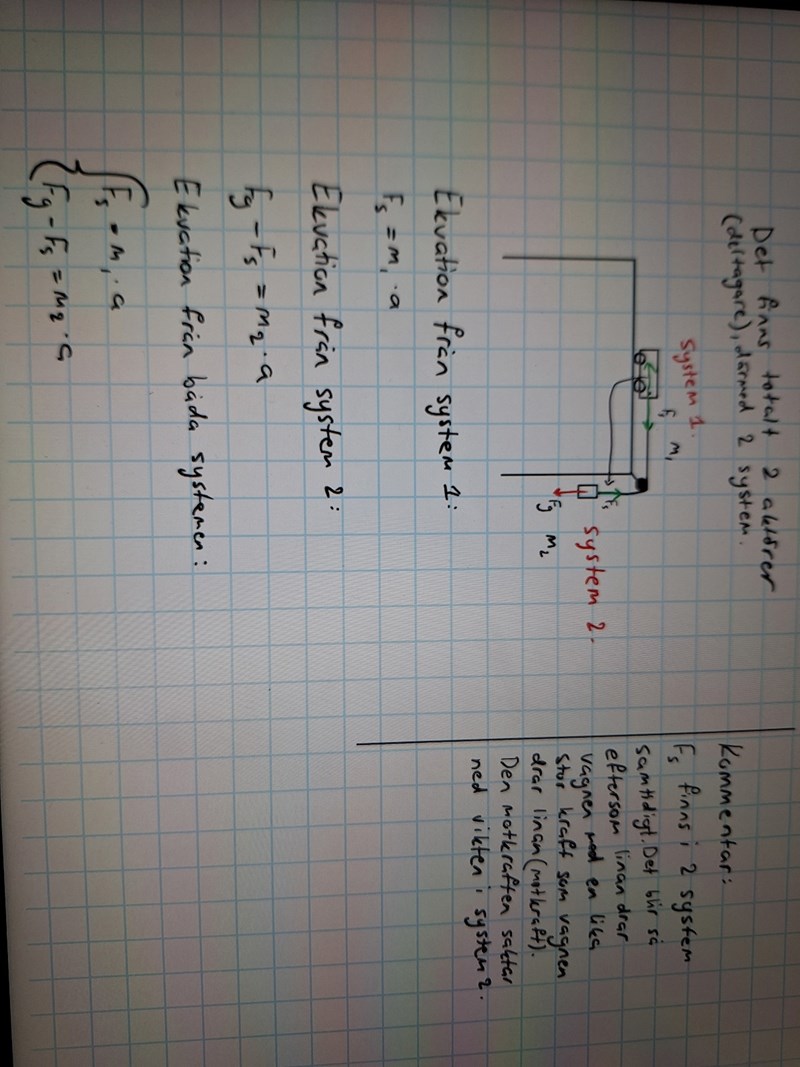 Det finns totalt 2 aktörer
(deltagare), därmed 2 system.
System 1.
Fs m₁
System 2.
Fs
Fg m₂
Ekvation från system 1:
Fs = m₁ · a
Ekvation från system 2:
Fg - Fs = m₂ · a
Ekvation från båda systemen:
Fs = m₁ · a
Fg - Fs = m₂ · a
Kommentar:
Fs finns i 2 system
samtidigt. Det blir så
eftersom linan drar
vagnen med en lika
stor kraft som vagnen
drar linan (motkraft).
Den motkraften saktar
ned vikten i system 2.